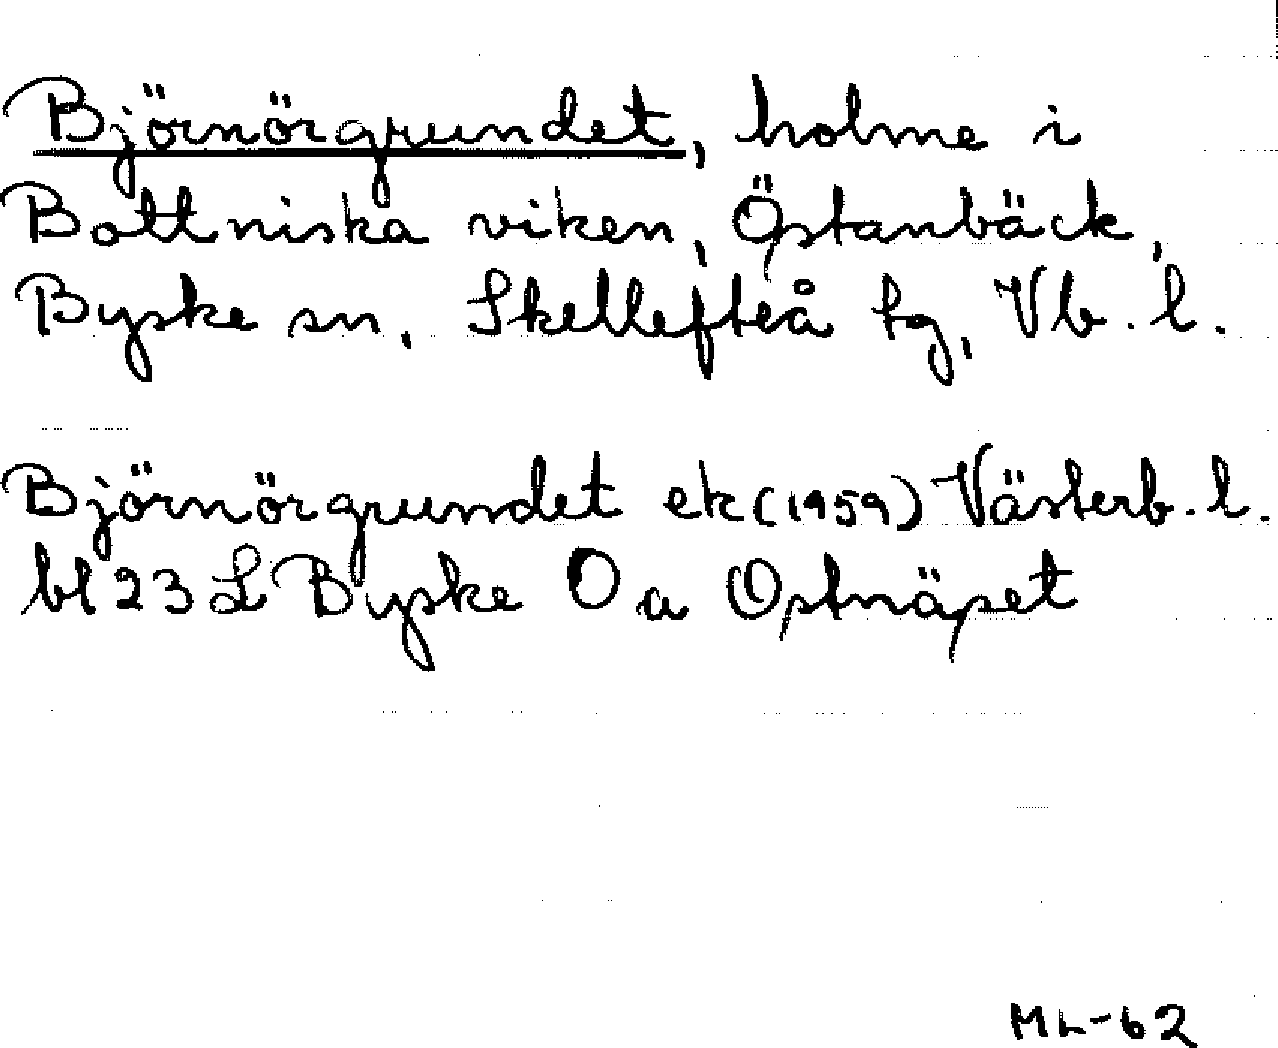 Björnörgrundet, holme i
Bottniska viken, Östanbäck,
Byske sn, Skellefteå tg, Vb. l.
Björnörgrundet ek (1959) Västerb. l.
bl 23 L Byske O a Ostnäset
ML-62